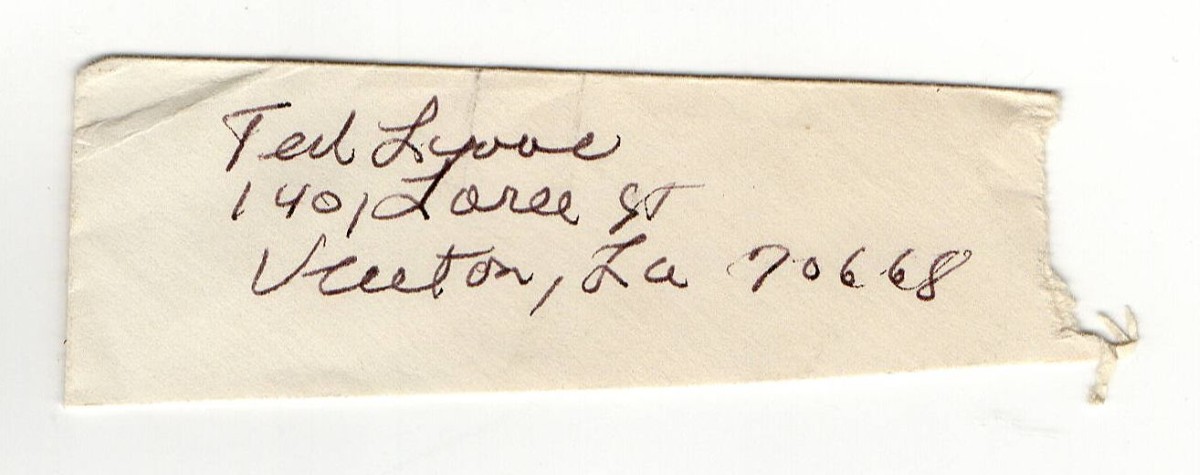 Ted Lyons
1401 Loree St
Vinton, La 70668